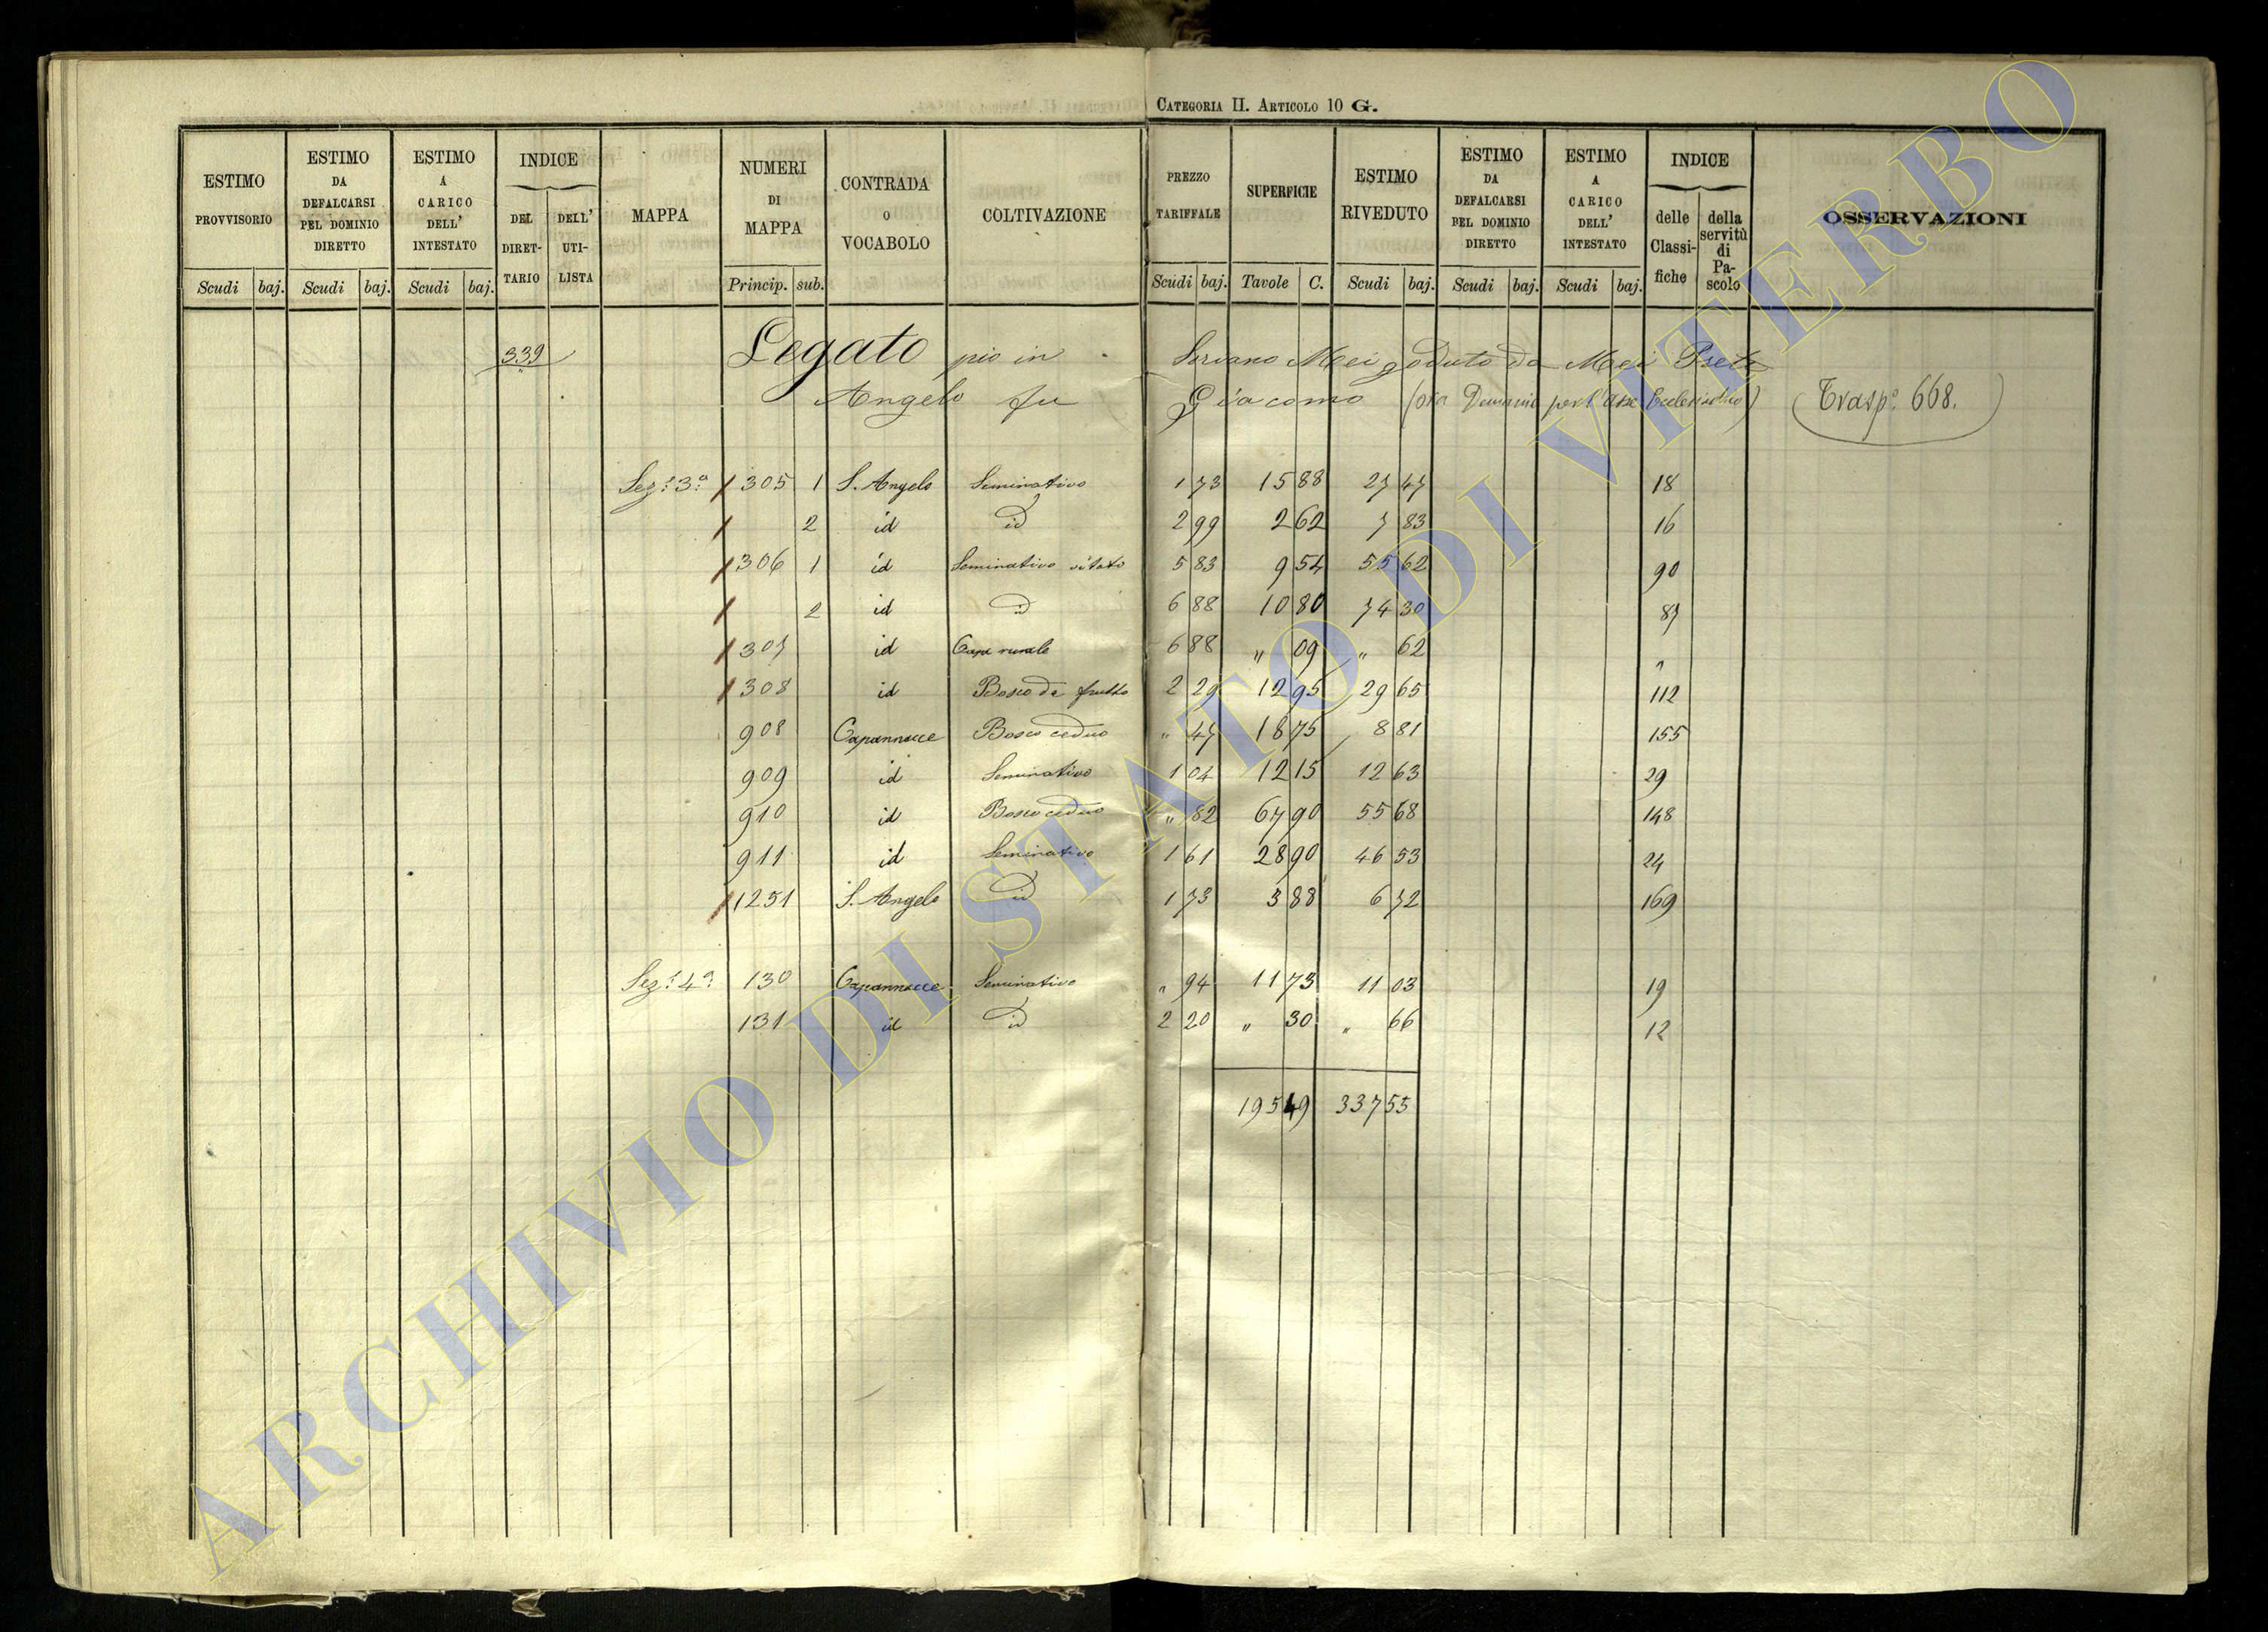 CATEGORIA II. ARTICOLO 10 G.
ESTIMO PROVVISORIO | ESTIMO DA DEFALCARSI PEL DOMINIO DIRETTO | ESTIMO A CARICO DELL' INTESTATO | INDICE DEL DIRETTARIO | DELL' UTILISTA | MAPPA | NUMERI DI MAPPA | CONTRADA O VOCABOLO | COLTIVAZIONE | PREZZO TARIFFALE | SUPERFICIE | ESTIMO RIVEDUTO | ESTIMO DA DEFALCARSI PEL DOMINIO DIRETTO | ESTIMO A CARICO DELL' INTESTATO | INDICE delle Classifiche | della servitù di Pascolo | OSSERVAZIONI
Scudi baj. Scudi baj. Scudi baj. Princip. sub. Scudi baj. Tavole C. Scudi baj. Scudi baj. Scudi baj.
339 Legato pio in Soriano Mei goduto da Mei Prete
Angelo fu Giacomo (ora Demanio per l'Asse Ecclesiastico) (Trasp.o 668.)
Sez.e 3a 305 1 S. Angelo Seminativo 1 73 15 88 27 47 18
2 id id 2 99 2 62 7 83 16
306 1 id Seminativo vitato 5 83 9 54 55 62 90
2 id id 6 88 10 80 74 30 87
307 id Casa rurale 6 88 " 09 " 62 "
308 id Bosco da frutto 2 29 12 95 29 65 112
908 Capannacce Bosco ceduo " 47 18 75 8 81 155
909 id Seminativo 1 04 12 15 12 63 29
910 id Bosco ceduo " 82 67 90 55 68 148
911 id Seminativo 1 61 28 90 46 53 24
1251 S. Angelo id 1 73 3 88 6 72 169
Sez.e 4a 130 Capannacce Seminativo " 94 11 73 11 03 19
131 id id 2 20 " 30 " 66 12
195 49 337 55
ARCHIVIO DI STATO DI VITERBO